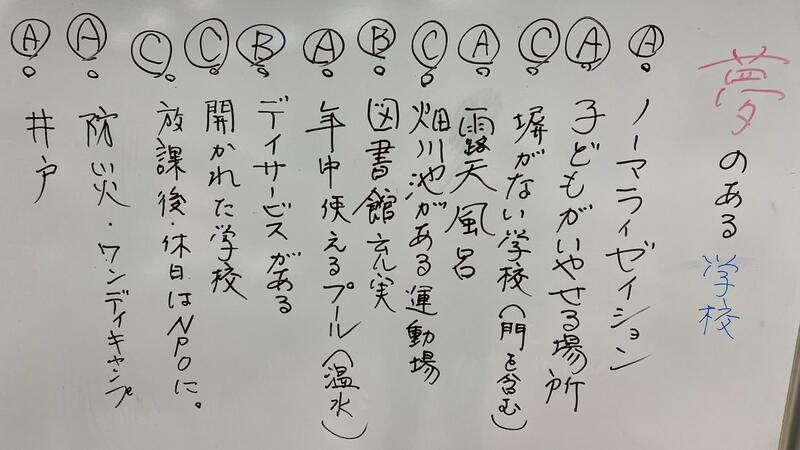 夢のある学校
Ⓐ。ノーマライゼイション
Ⓐ。子どもがいやせる場所
Ⓒ。塀がない学校(門を含む)
Ⓐ。露天風呂
Ⓒ。畑川池がある運動場
Ⓑ。図書館充実
Ⓐ。年中使えるプール(温水)
Ⓑ。デイサービスがある
Ⓒ。開かれた学校
Ⓒ。放課後・休日はNPOに。
Ⓐ。防災・ワンディキャンプ
Ⓐ。井戸